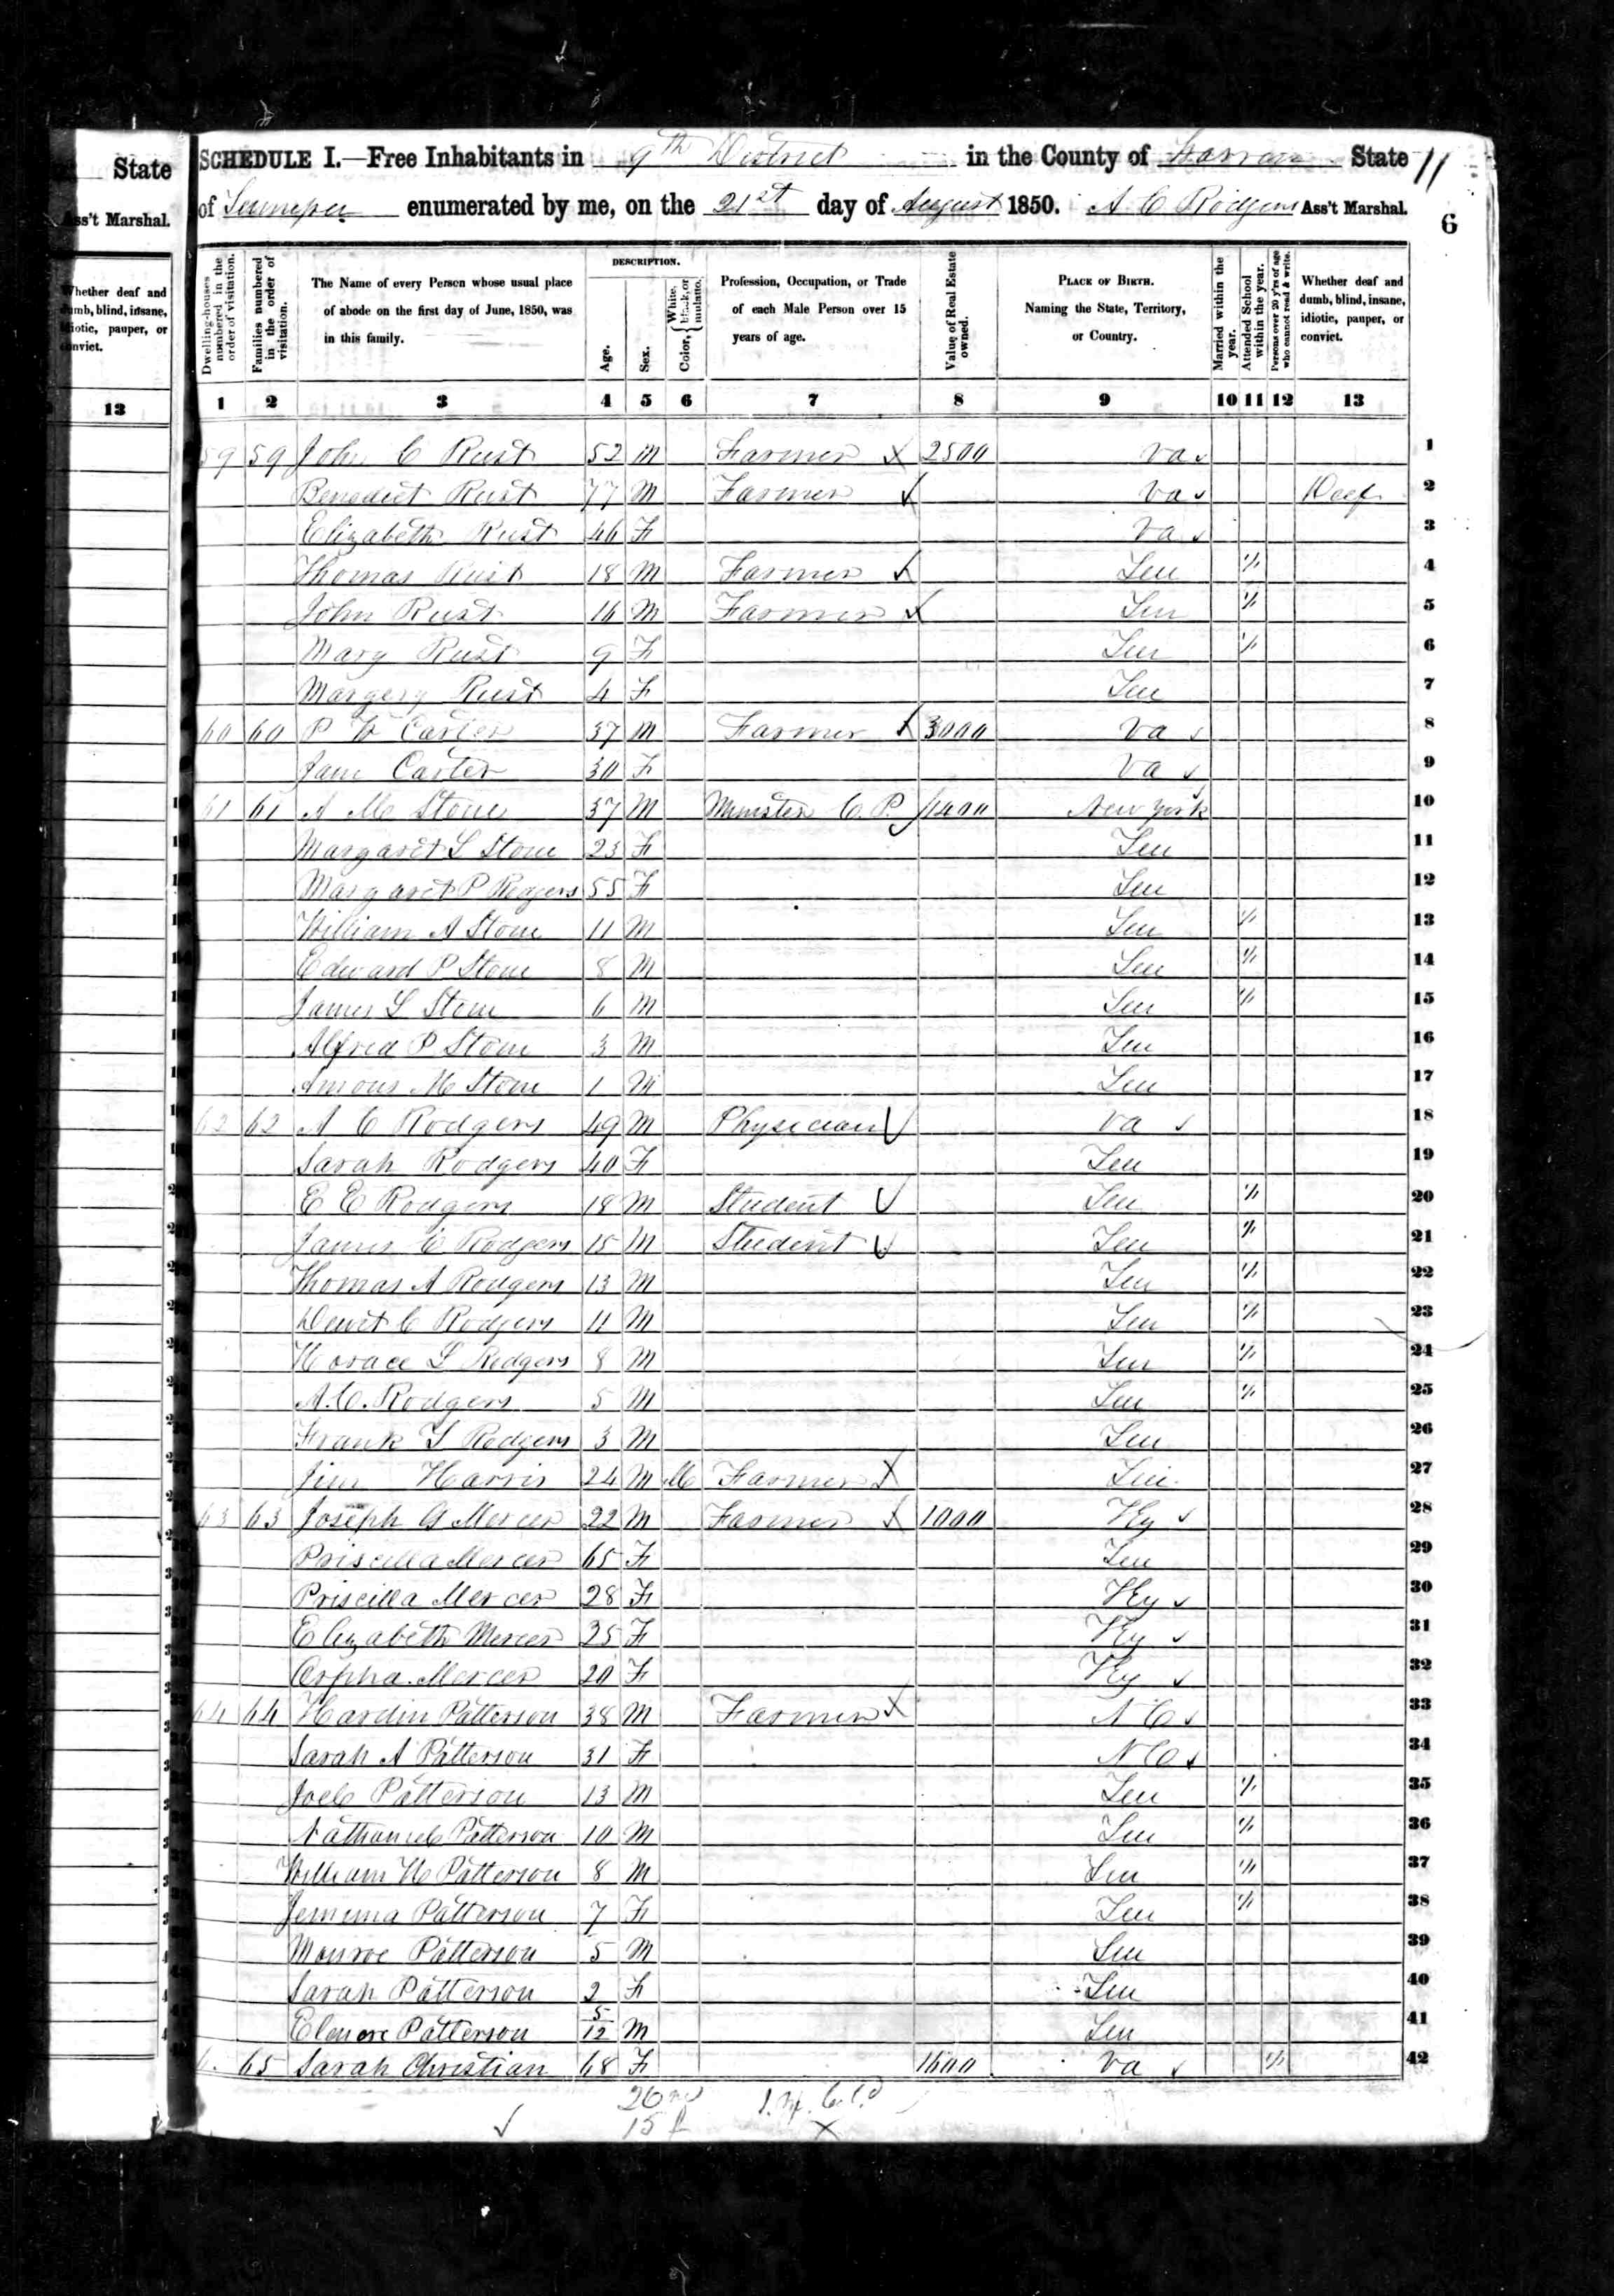 State
Ass't Marshal.
Whether deaf and dumb, blind, insane, idiotic, pauper, or convict.
13
SCHEDULE I.—Free Inhabitants in 9th District in the County of State 11
of enumerated by me, on the 21st day of August 1850. A C Rodgers Ass't Marshal.
6
Dwelling-houses numbered in the order of visitation.
Families numbered in the order of visitation.
The Name of every Person whose usual place of abode on the first day of June, 1850, was in this family.
DESCRIPTION.
Age.
Sex.
Color, { White, black, or mulatto.
Profession, Occupation, or Trade of each Male Person over 15 years of age.
Value of Real Estate owned.
PLACE OF BIRTH. Naming the State, Territory, or Country.
Married within the year.
Attended School within the year.
Persons over 20 y'rs of age who cannot read & write.
Whether deaf and dumb, blind, insane, idiotic, pauper, or convict.
1 2 3 4 5 6 7 8 9 10 11 12 13
59 59 John C Rust 52 M Farmer X 2500 Va ✓ 1
Benedict Rust 77 M Farmer X Va ✓ Deef 2
Elizabeth Rust 46 F Va ✓ 3
Thomas Rust 18 M Farmer X Ten 1/1 4
John Rust 16 M Farmer X Ten 1/1 5
Mary Rust 9 F Ten 1/1 6
Margery Rust 4 F Ten 7
60 60 P W Carter 37 M Farmer X 3000 Va ✓ 8
Jane Carter 30 F Va ✓ 9
61 61 A M Stone 37 M Minister C. P. 1400 New York 10
Margaret L Stone 23 F Ten 11
Margaret P Rodgers 55 F Ten 12
William A Stone 11 M Ten 1/1 13
Edward P Stone 8 M Ten 1/1 14
James L Stone 6 M Ten 1/1 15
Alfred P Stone 3 M Ten 16
Amous M Stone 1 M Ten 17
62 62 A C Rodgers 49 M Physician ✓ Va ✓ 18
Sarah Rodgers 40 F Ten 19
E E Rodgers 18 M Student ✓ Ten 1/1 20
James C Rodgers 15 M Student ✓ Ten 1/1 21
Thomas A Rodgers 13 M Ten 1/1 22
Dewit C Rodgers 11 M Ten 1/1 23
Horace L Rodgers 8 M Ten 1/1 24
A. C. Rodgers 5 M Ten 1/1 25
Frank L Rodgers 3 M Ten 26
Jim Harris 24 M M Farmer X Ten 27
63 63 Joseph G Mercer 22 M Farmer X 1000 Ky ✓ 28
Priscilla Mercer 65 F Ten 29
Priscilla Mercer 28 F Ky ✓ 30
Elizabeth Mercer 25 F Ky ✓ 31
Orpha Mercer 20 F Ky ✓ 32
64 64 Hardin Patterson 38 M Farmer X N C ✓ 33
Sarah A Patterson 31 F N C ✓ 34
Joel Patterson 13 M Ten 1/1 35
Nathaniel Patterson 10 M Ten 1/1 36
William H Patterson 8 M Ten 1/1 37
Jemima Patterson 7 F Ten 1/1 38
Monroe Patterson 5 M Ten 39
Sarah Patterson 2 F Ten 40
Elenore Patterson 5/12 M Ten 41
65 Sarah Christian 68 F 1600 Va ✓ 1/1 42
26
15 f